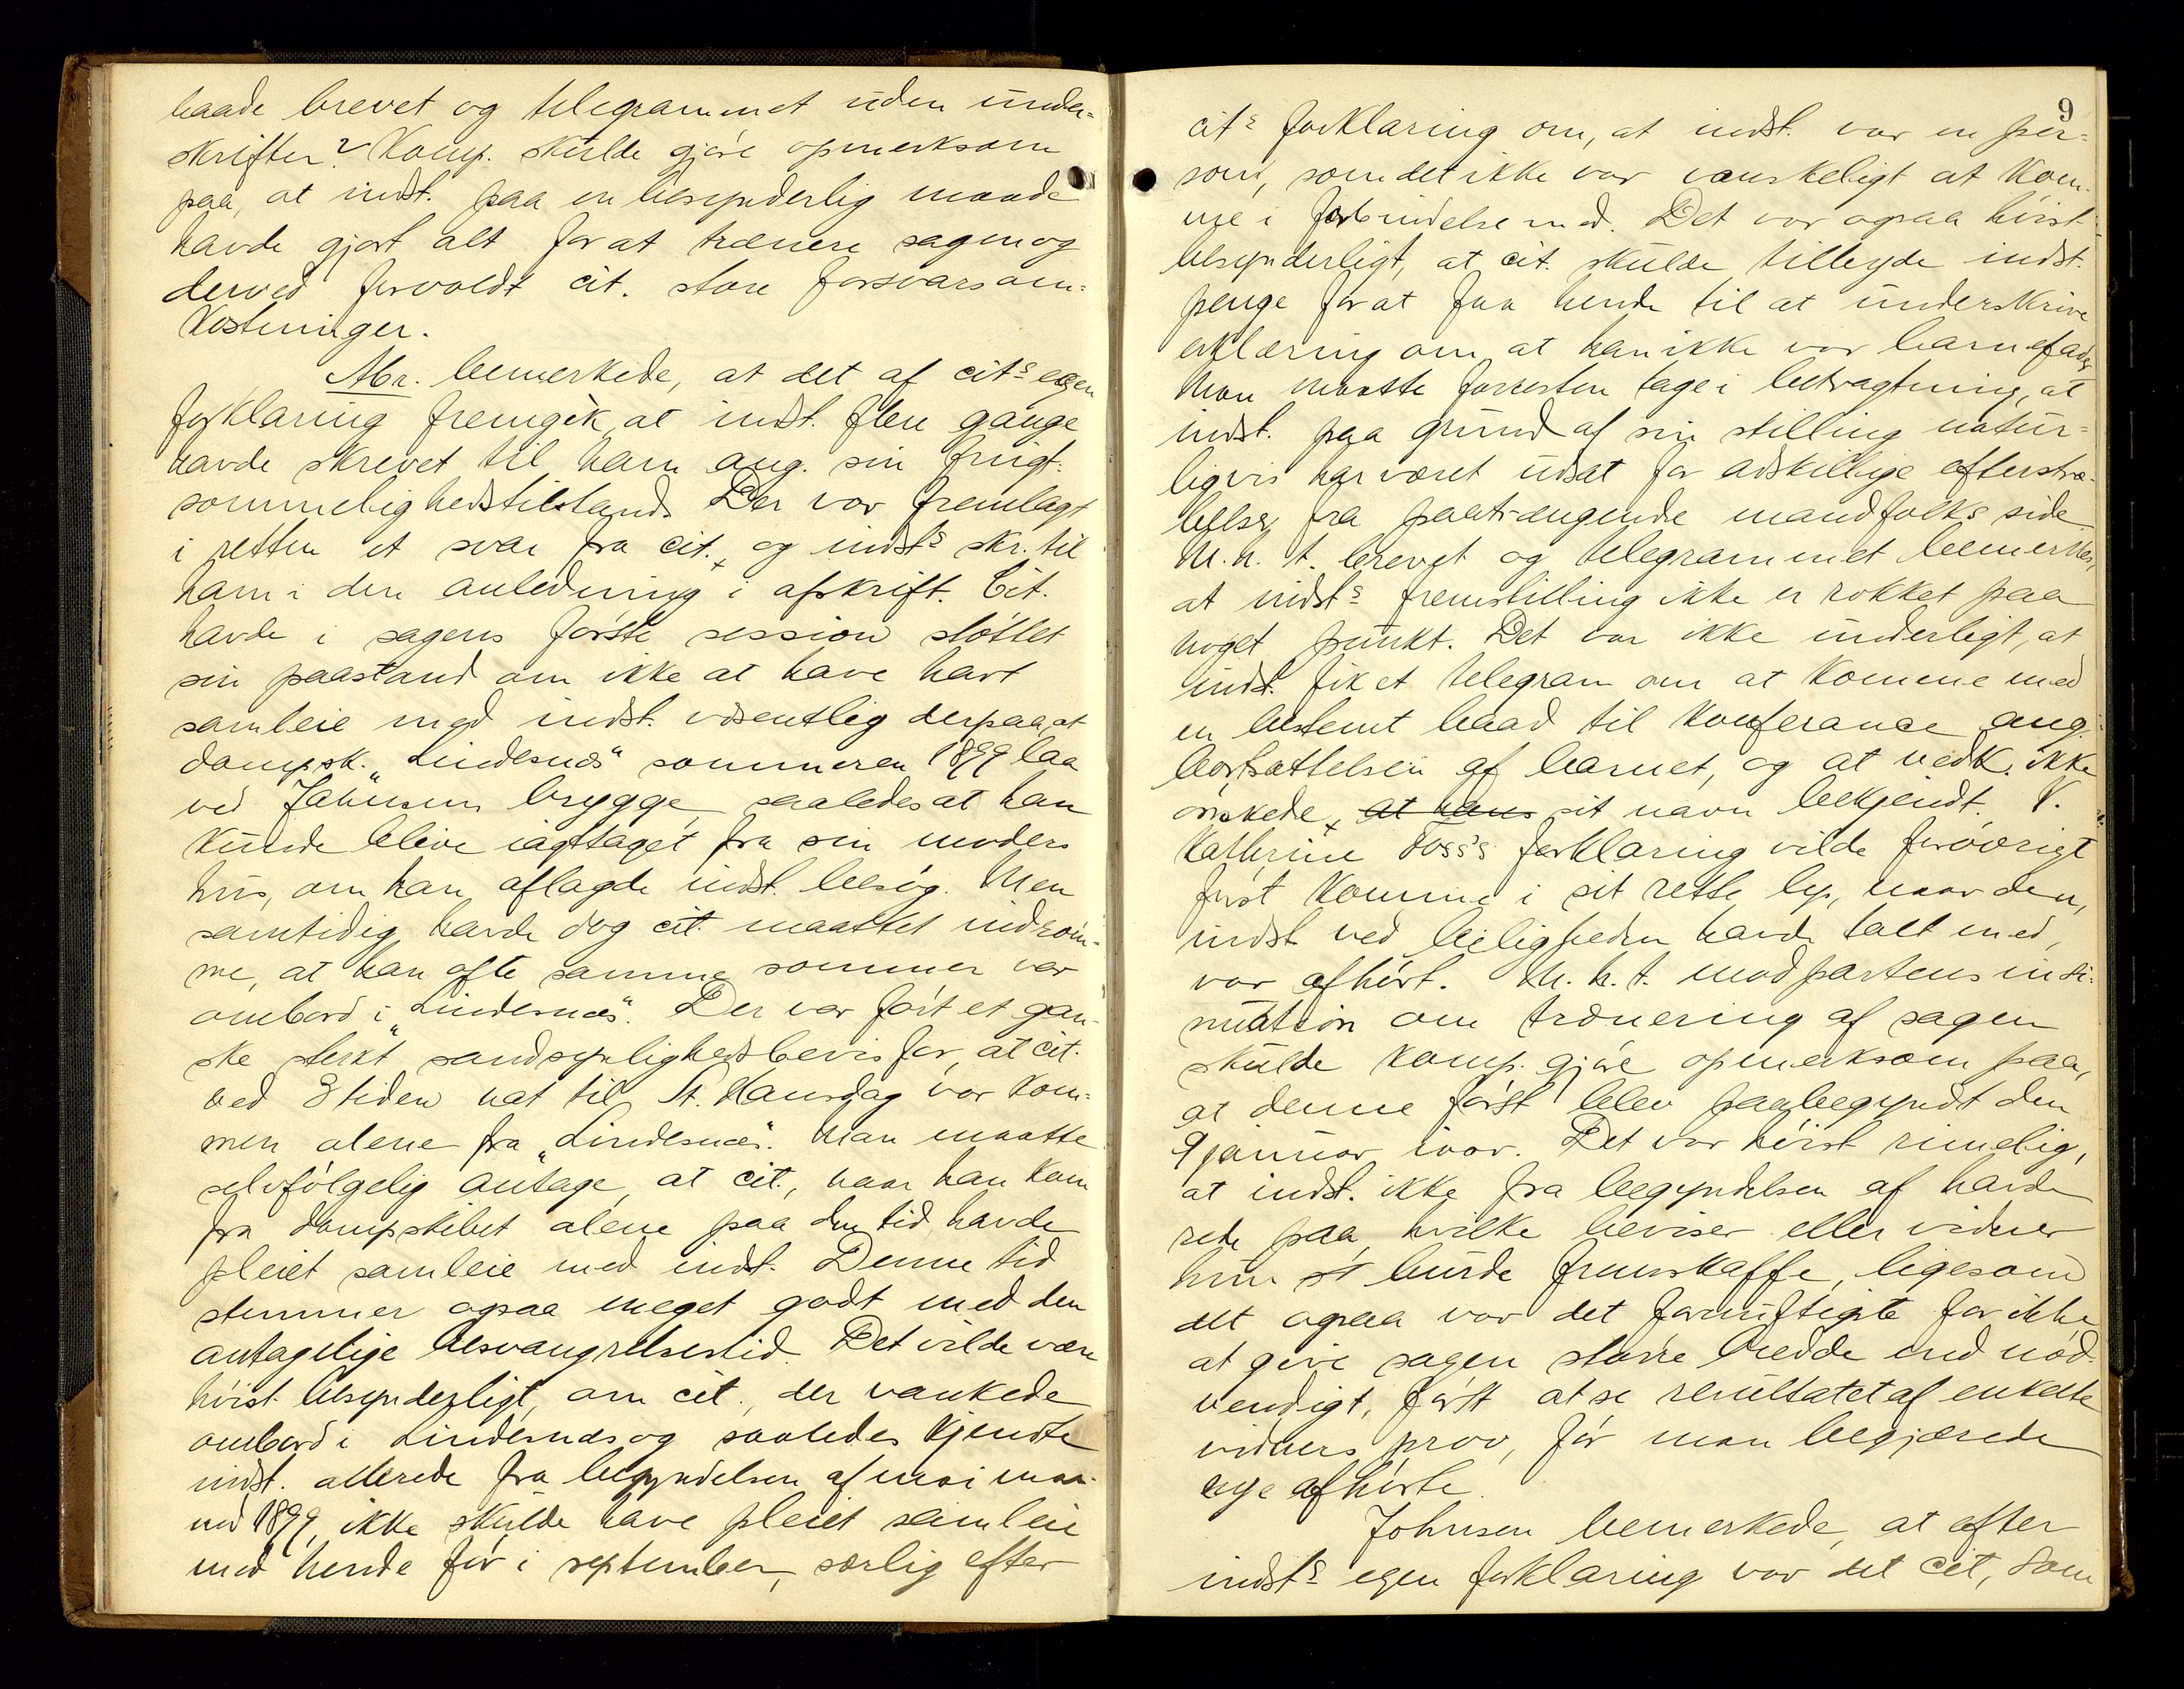 baade brevet og telegrammet uden under-
skrifter? Komp. skulde gjøre opmerksom
paa, at indst. paa en besynderlig maade
havde gjort alt for at trænere sagen og
derved forvoldt cit. store forsvarsom-
kostninger.
Mr. bemerkede, at det af cits egen
forklaring fremgik, at indst. flere gange
havde skrevet til ham ang. sin frugt-
sommelighedstilstand. Der var fremlagt
i retten et svar fra cit. og indsts skr. til
ham i den anledning i afskrift. Cit.
havde i sagens første session støttet
sin paastand om ikke at have havt
samleie med indst. væsentlig derpaa, at
dampsk. "Lindesnæs" sommeren 1899 laa
ved Jahnsens brygge, saaledes at han
kunde blive iagttaget fra sin moders
hus, om han aflagde indst. besøg. Men
samtidig havde dog cit. maattet indrøm-
me, at han ofte samme sommer var
ombord i "Lindesnæs". Der var ført et gan-
ske sterkt sandsynlighedsbevis for, at cit.
ved 3 tiden nat til St. Hansdag var kom-
men alene fra "Lindesnæs". Man maatte
selvfølgelig antage, at cit., naar han kom
fra dampskibet alene paa den tid, havde
pleiet samleie med indst. Denne tid
stemmer ogsaa meget godt med den
antagelige besvangrelsestid. Det vilde være
høist besynderligt, om cit., der vankede
ombord i Lindesnæs og saaledes kjendte
indst. allerede fra begyndelsen af mai maa-
ned 1899, ikke skulde have pleiet samleie
med hende før i september, særlig efter
9
cits forklaring om, at indst. var en per-
son, som det ikke var vanskeligt at kom-
me i forbindelse med. Det var ogsaa høist
besynderligt, at cit. skulde tilbyde indst.
penge for at faa hende til at underskrive
erklæring om, at han ikke var barnefader.
Man maatte forresten tage i betragtning, at
indst. paa grund af sin stilling natur-
ligvis har været udsat for adskillige efterstræ-
belser fra paatrængende mandfolks side.
M. h. t. brevet og telegrammet bemerkes,
at indsts fremstilling ikke er rokket paa
noget punkt. Det var ikke underligt, at
indst. fik et telegram om at komme med
en bestemt baad til konferance ang.
bortsættelsen af barnet, og at vedk. ikke
ønskede, at hans sit navn bekjendt. V.
Kathrine Foss's forklaring vilde forøvrigt
først komme i sit rette lys, naar den,
indst. ved leiligheden havde talt med,
var afhørt. M. h. t. modpartens insi-
nuation om trænering af sagen
skulde komp. gjøre opmerksom paa,
at denne først blev paabegyndt den
9 januar iaar. Det var høist rimelig,
at indst. ikke fra begyndelsen af havde
rede paa, hvilke beviser eller vidner
hun st burde fremskaffe, ligesom
det ogsaa var det fornuftigste for ikke
at give sagen større bredde end nød-
vendigt, først at se resultatet af enkelte
vidners prov, før man begjærede
nye afhørte.
Johnsen bemerkede, at efter
indsts egen forklaring var det cit., som